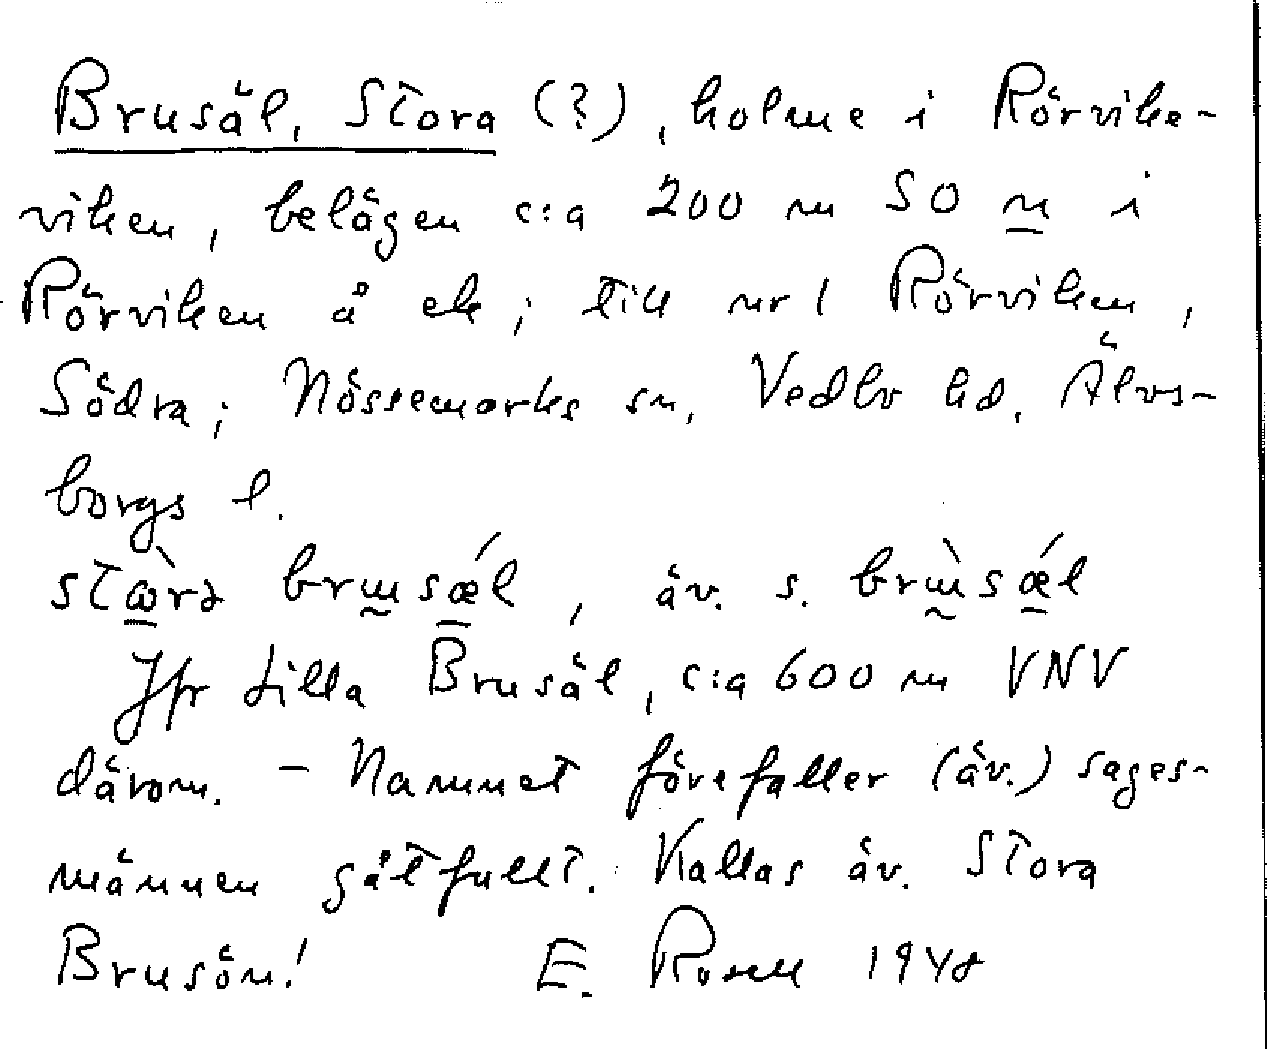 Brusäl, Stora (?), holme i Rörvike-
viken, belägen c:a 200 m SO n i
Rörviken å ek; till nr 1 Rörviken,
Södra; Nössemarks sn, Vedbo hd, Älvs-
borgs l.
brusǽl, äv. s. brùsǽl
Jfr Lilla Brusäl, c:a 600 m VNV
därom. - Namnet förefaller (äv.) sages-
männen gåtfullt. Kallas äv. Stora
Brusön! E. Rosell 1948